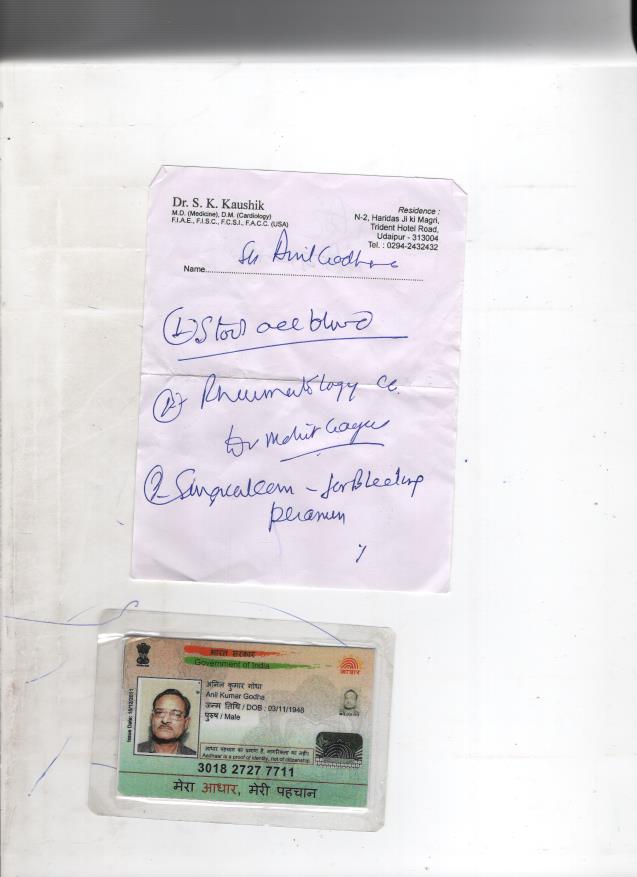 Dr. S. K. Kaushik
M.D. (Medicine), D.M. (Cardiology)
F.I.A.E., F.I.S.C., F.C.S.I., F.A.C.C. (USA)
Residence :
N-2, Haridas Ji ki Magri,
Trident Hotel Road,
Udaipur - 313004
Tel. : 0294-2432432
Name Anil Godha
Stool
Rheumatology
Dr Mohit
for Bleeding
भारत सरकार
Government of India
आधार
Issue Date: 15/12/2011
अनिल कुमार गोधा
Anil Kumar Godha
जन्म तिथि / DOB : 03/11/1948
पुरुष / Male
आधार पहचान का प्रमाण है, नागरिकता का नहीं।
Aadhaar is a proof of identity, not of citizenship
3018 2727 7711
मेरा आधार, मेरी पहचान